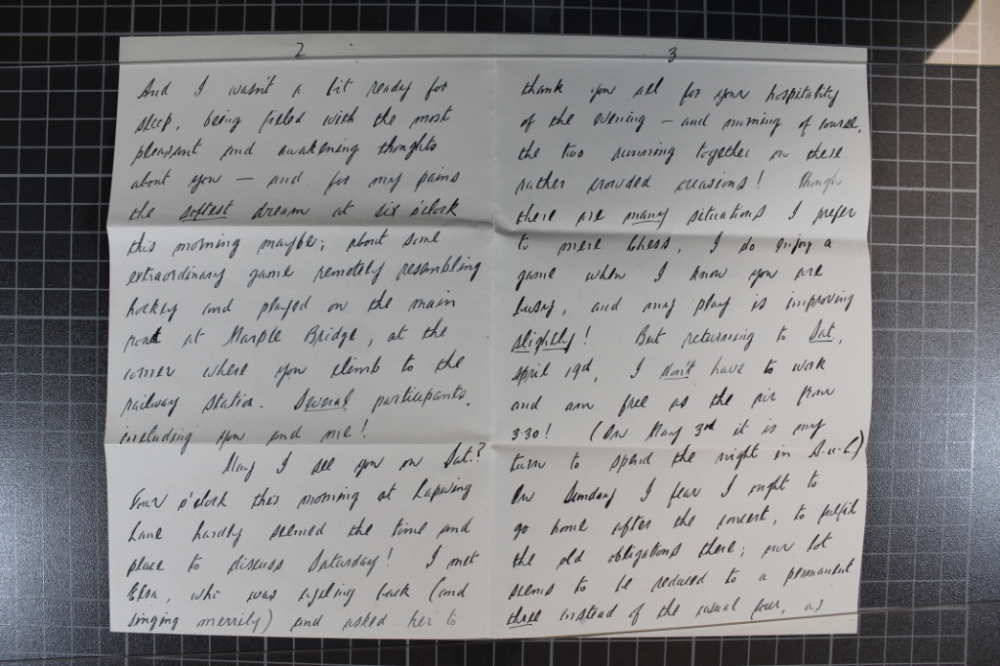 2
And I wasn't a bit ready for
sleep, being filled with the most
pleasant and awakening thoughts
about you — and for my pains
the softest dream at six o'clock
this morning maybe; about some
extraordinary game remotely resembling
hockey and played on the main
road at Marple Bridge, at the
corner where you climb to the
railway station. Several participants,
including you and me!
May I see you on Sat.?
Four o'clock this morning at Lapwing
Lane hardly seemed the time and
place to discuss Saturday! I met
Elsa, who was cycling back (and
singing merrily) and asked her to
3
thank you all for your hospitality
of the evening — and morning of course,
the two running together on these
rather crowded occasions! Though
there are many situations I prefer
to mere chess, I do enjoy a
game when I know you are
busy, and my play is improving
slightly! But returning to Sat.,
April 19th, I don't have to work
and am free as the air from
3.30! (On May 3rd it is my
turn to spend the night in A-u-L)
On Sunday I fear I ought to
go home after the concert, to fulfil
the old obligations there; our lot
seems to be reduced to a permanent
three instead of the usual four, as